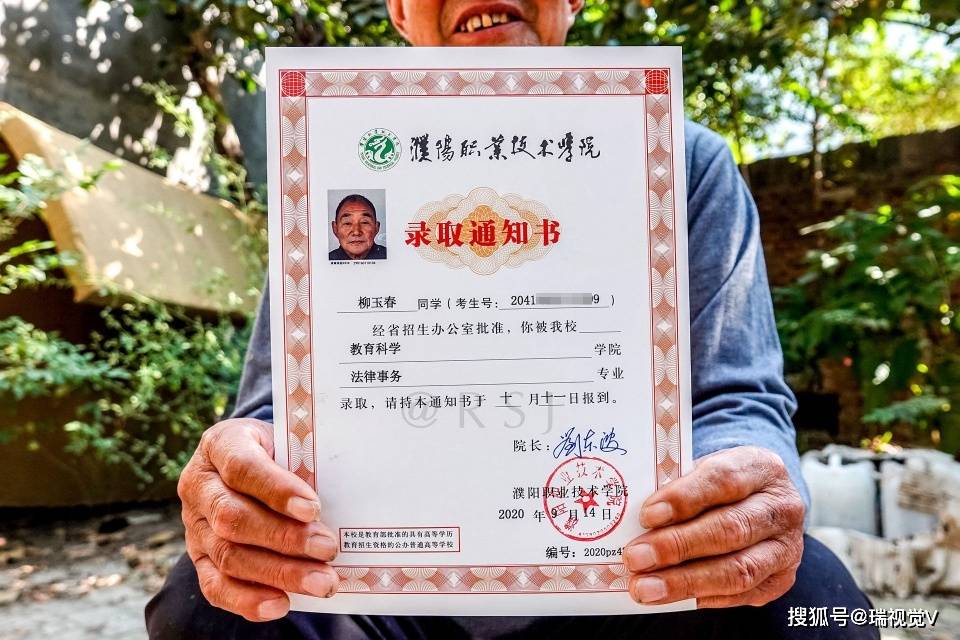 濮阳职业技术学院
录取通知书
柳玉春 同学（考生号：2041 09 ）
经省招生办公室批准，你被我校
教育科学 学院
法律事务 专业
录取，请持本通知书于 十 月十一日报到。
@RSJ
院长：刘东波
濮阳职业技术学院
2020 年 9 月 14 日
本校是教育部批准的具有高等学历
教育招生资格的公办普通高等学校
编号：2020pz4
搜狐号@瑞视觉V